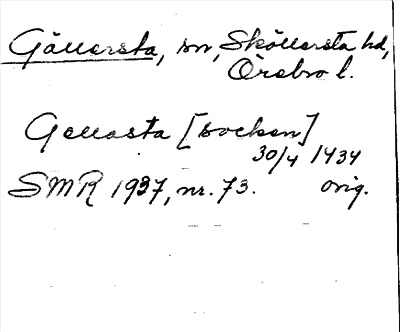 Gällersta, sn, Sköllersta hd,
Örebro l.
Gellasta [socken]
30/4 1434
SMR 1937, nr. 73. orig.